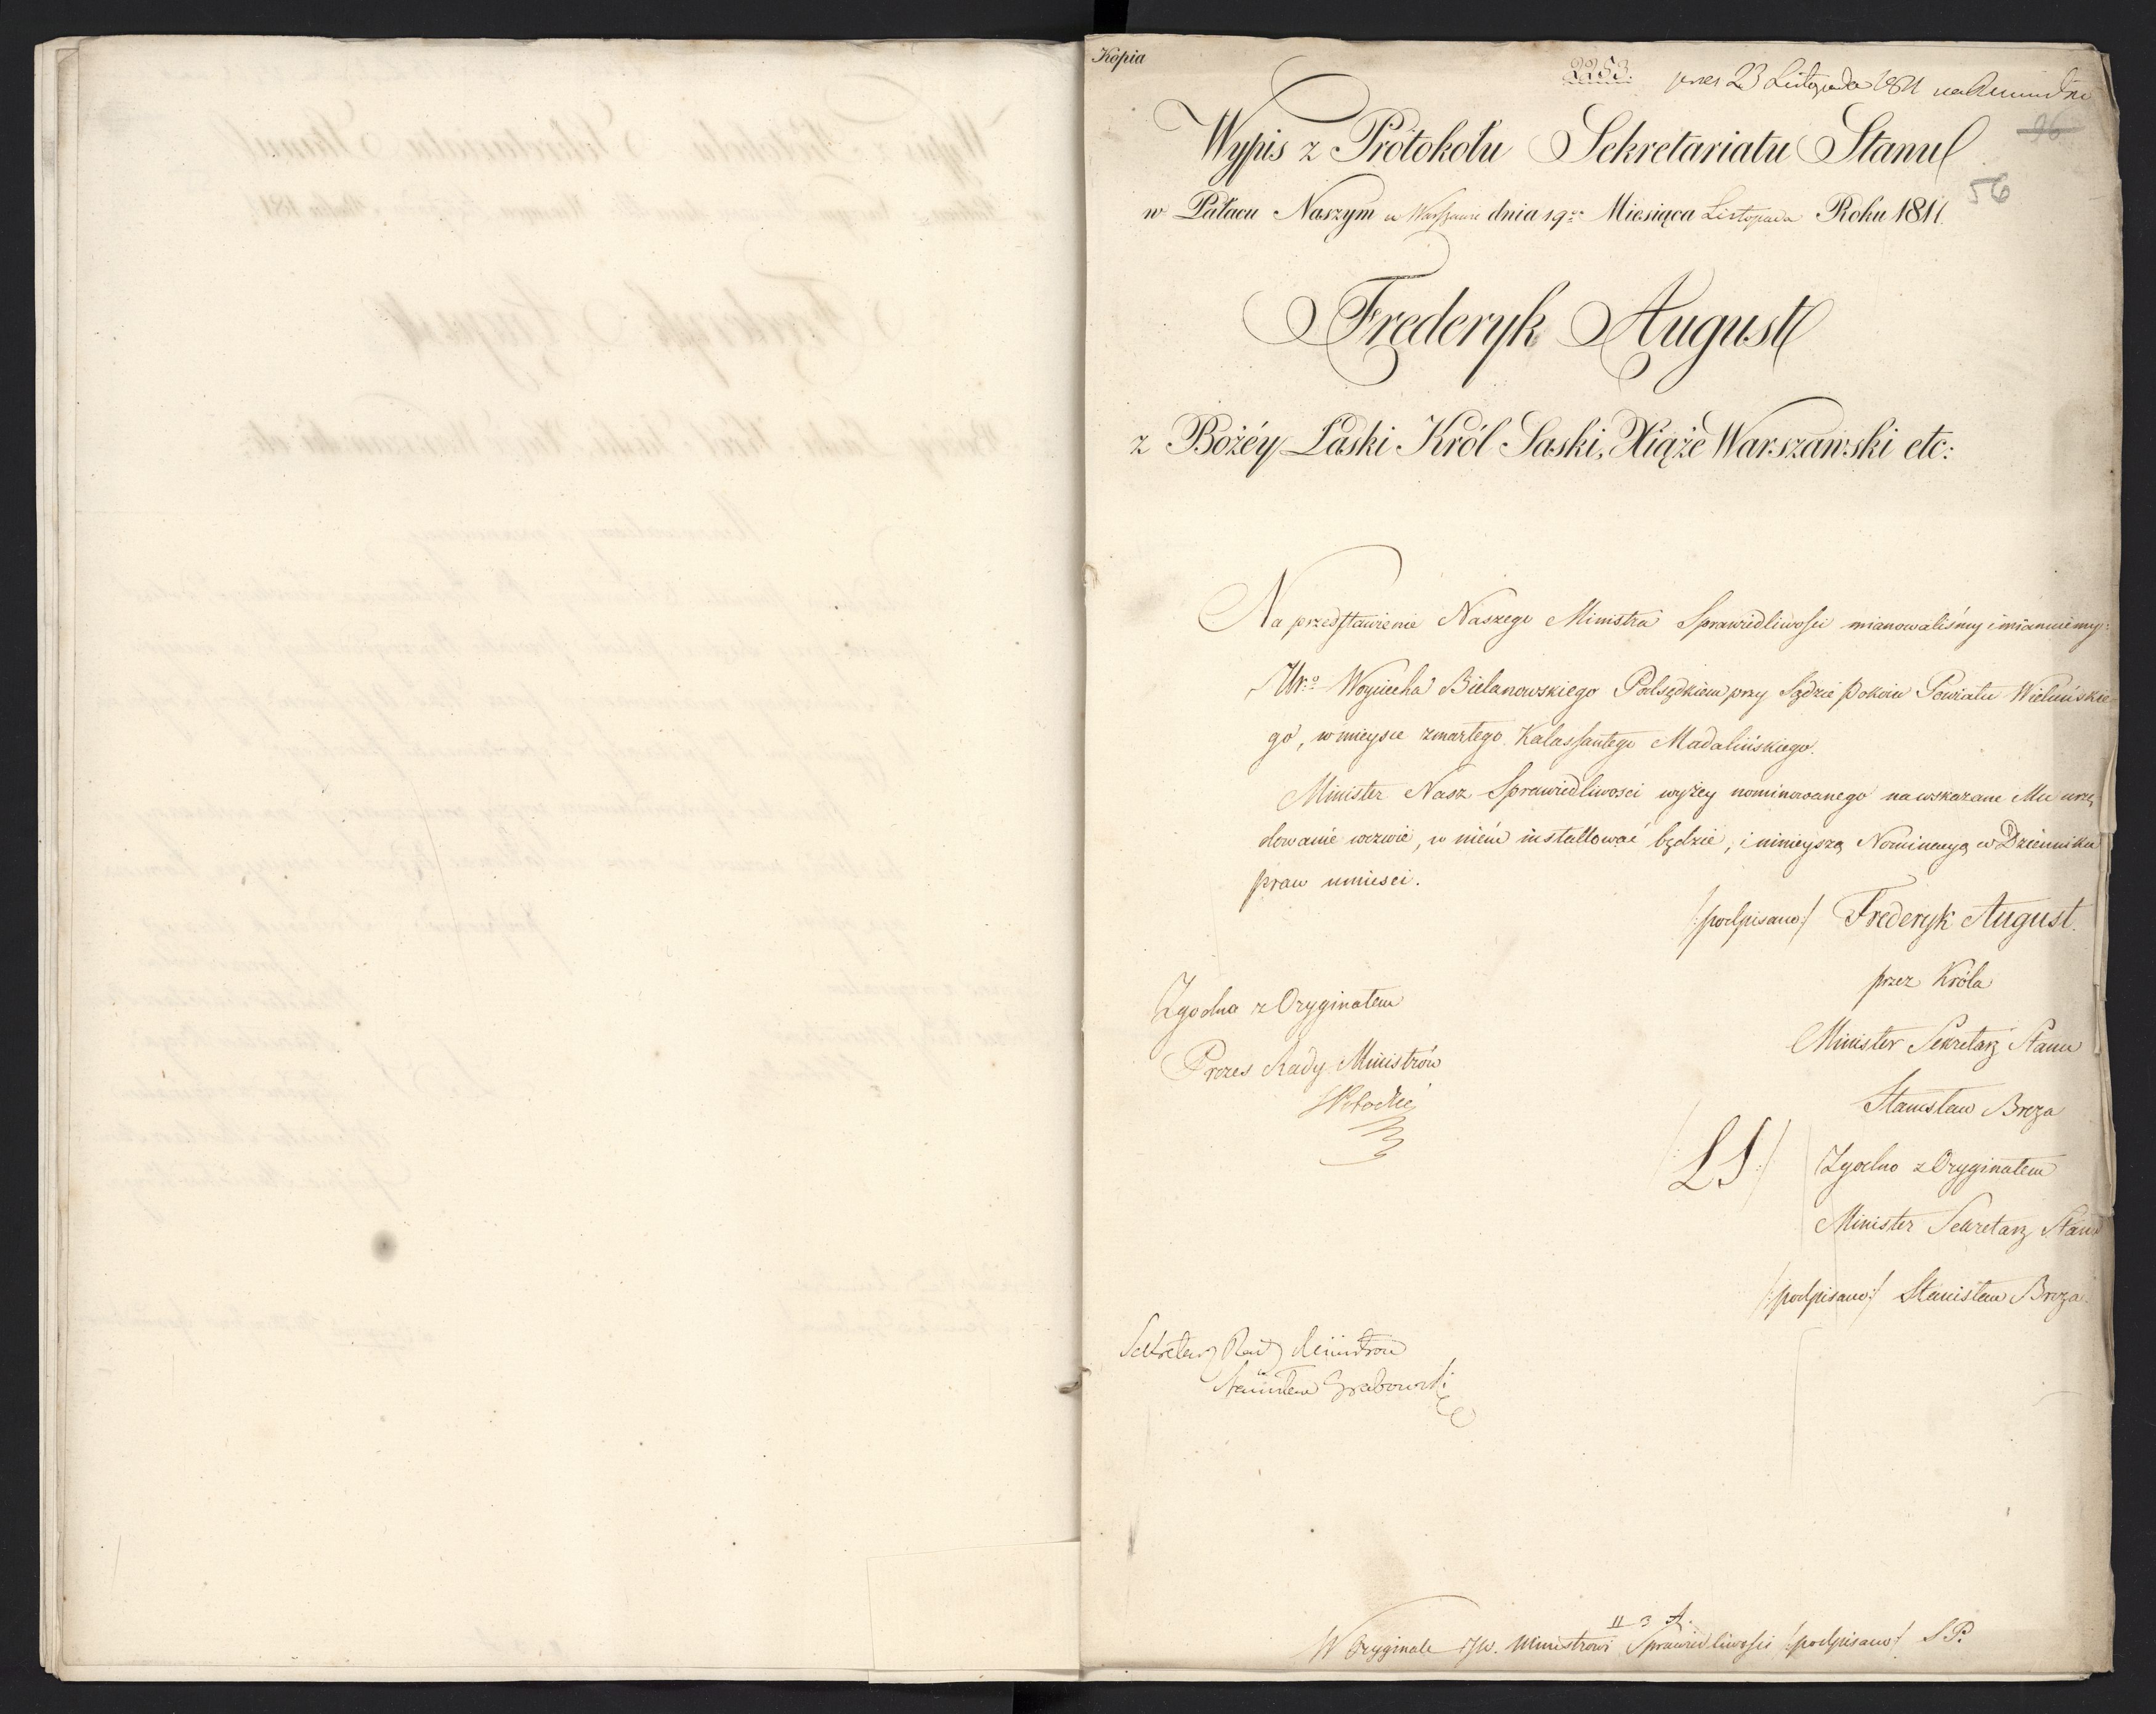 Kopia
2253. pres 23 Listopada 1811
96
Wypis z Protokołu Sekretariatu Stanu
56
w Pałacu Naszym w Warszawie dnia 19go Miesiąca Listopada Roku 1811.
Frederyk August
z Bożéy Łaski Król Saski, Xiąże Warszawski etc:
Na przedstawienie Naszego Ministra Sprawiedliwości mianowaliśmy i mianuiemy:
Ur:o Woyciecha Bielanowskiego Podsędkiem przy Sądzie Pokoiu Powiatu Wieluńskie-
go, w mieysce zmarłego Kalassantego Madalińskiego.
Minister Nasz Sprawiedliwosci wyżey nominowanego na wskazane Mu urzę
dowanie wezwie, w niém installować będzie, i ninieyszą Nominacyą w Dzienniku
praw umiesci.
/:podpisano:/ Frederyk August.
przez Króla
Minister Sekretarz Stanu
Stanisław Breza
Zgodna z Oryginałem
Prezes Rady Ministrów
SPotocki
/:LS:/ Zgodno z Oryginałem
Minister Sekretarz Stanu
/:podpisano:/ Stanisław Breza.
Sekretarz Rady Ministrow
Stanisław Grabowski
II 3 A.
W Oryginale JW. Ministrowi Sprawiedliwości /:podpisano:/ S.P.